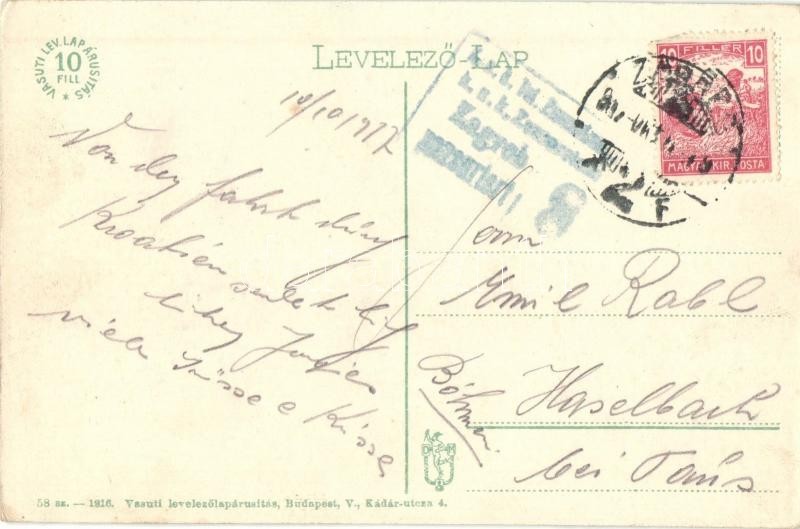 VASUTI LEV.LAPÁRUSITÁS
10
FILL
LEVELEZŐ-LAP
10 FILLER 10
MAGYAR KIR. POSTA
k.u.k.
Zagreb
10/10 1917
Von der Fahrt durch
Kroatien sendet
viele Grüsse & Küsse
Herrn
Emil Rabl
Haselbach
Böhmen
bei Taus
58 sz. — 1916. Vasuti levelezőlapárusitás, Budapest, V., Kádár-utcza 4.